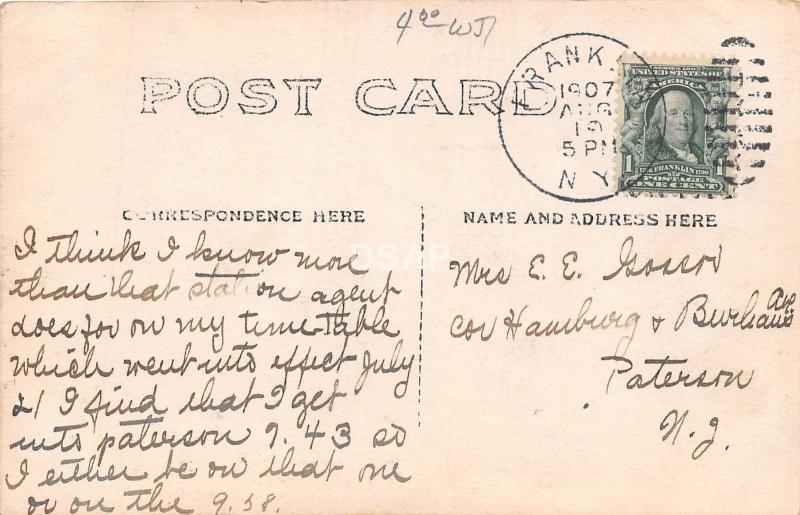 4 00 WJ
POST CARD
FRANKLIN
1907
AUG
19
5 PM
N Y
UNITED STATES OF
AMERICA
1 1
FRANKLIN
POSTAGE
ONE CENT
CORRESPONDENCE HERE
NAME AND ADDRESS HERE
DSAP
I think I know more
than that station agent
does for on my time-table
which went into effect July
21 I find that I get
into paterson 9.43 so
I either be on that one
or on the 9.58.
Mrs E. E.
cor Hamburg & Burhans Ave
Paterson
N. J.